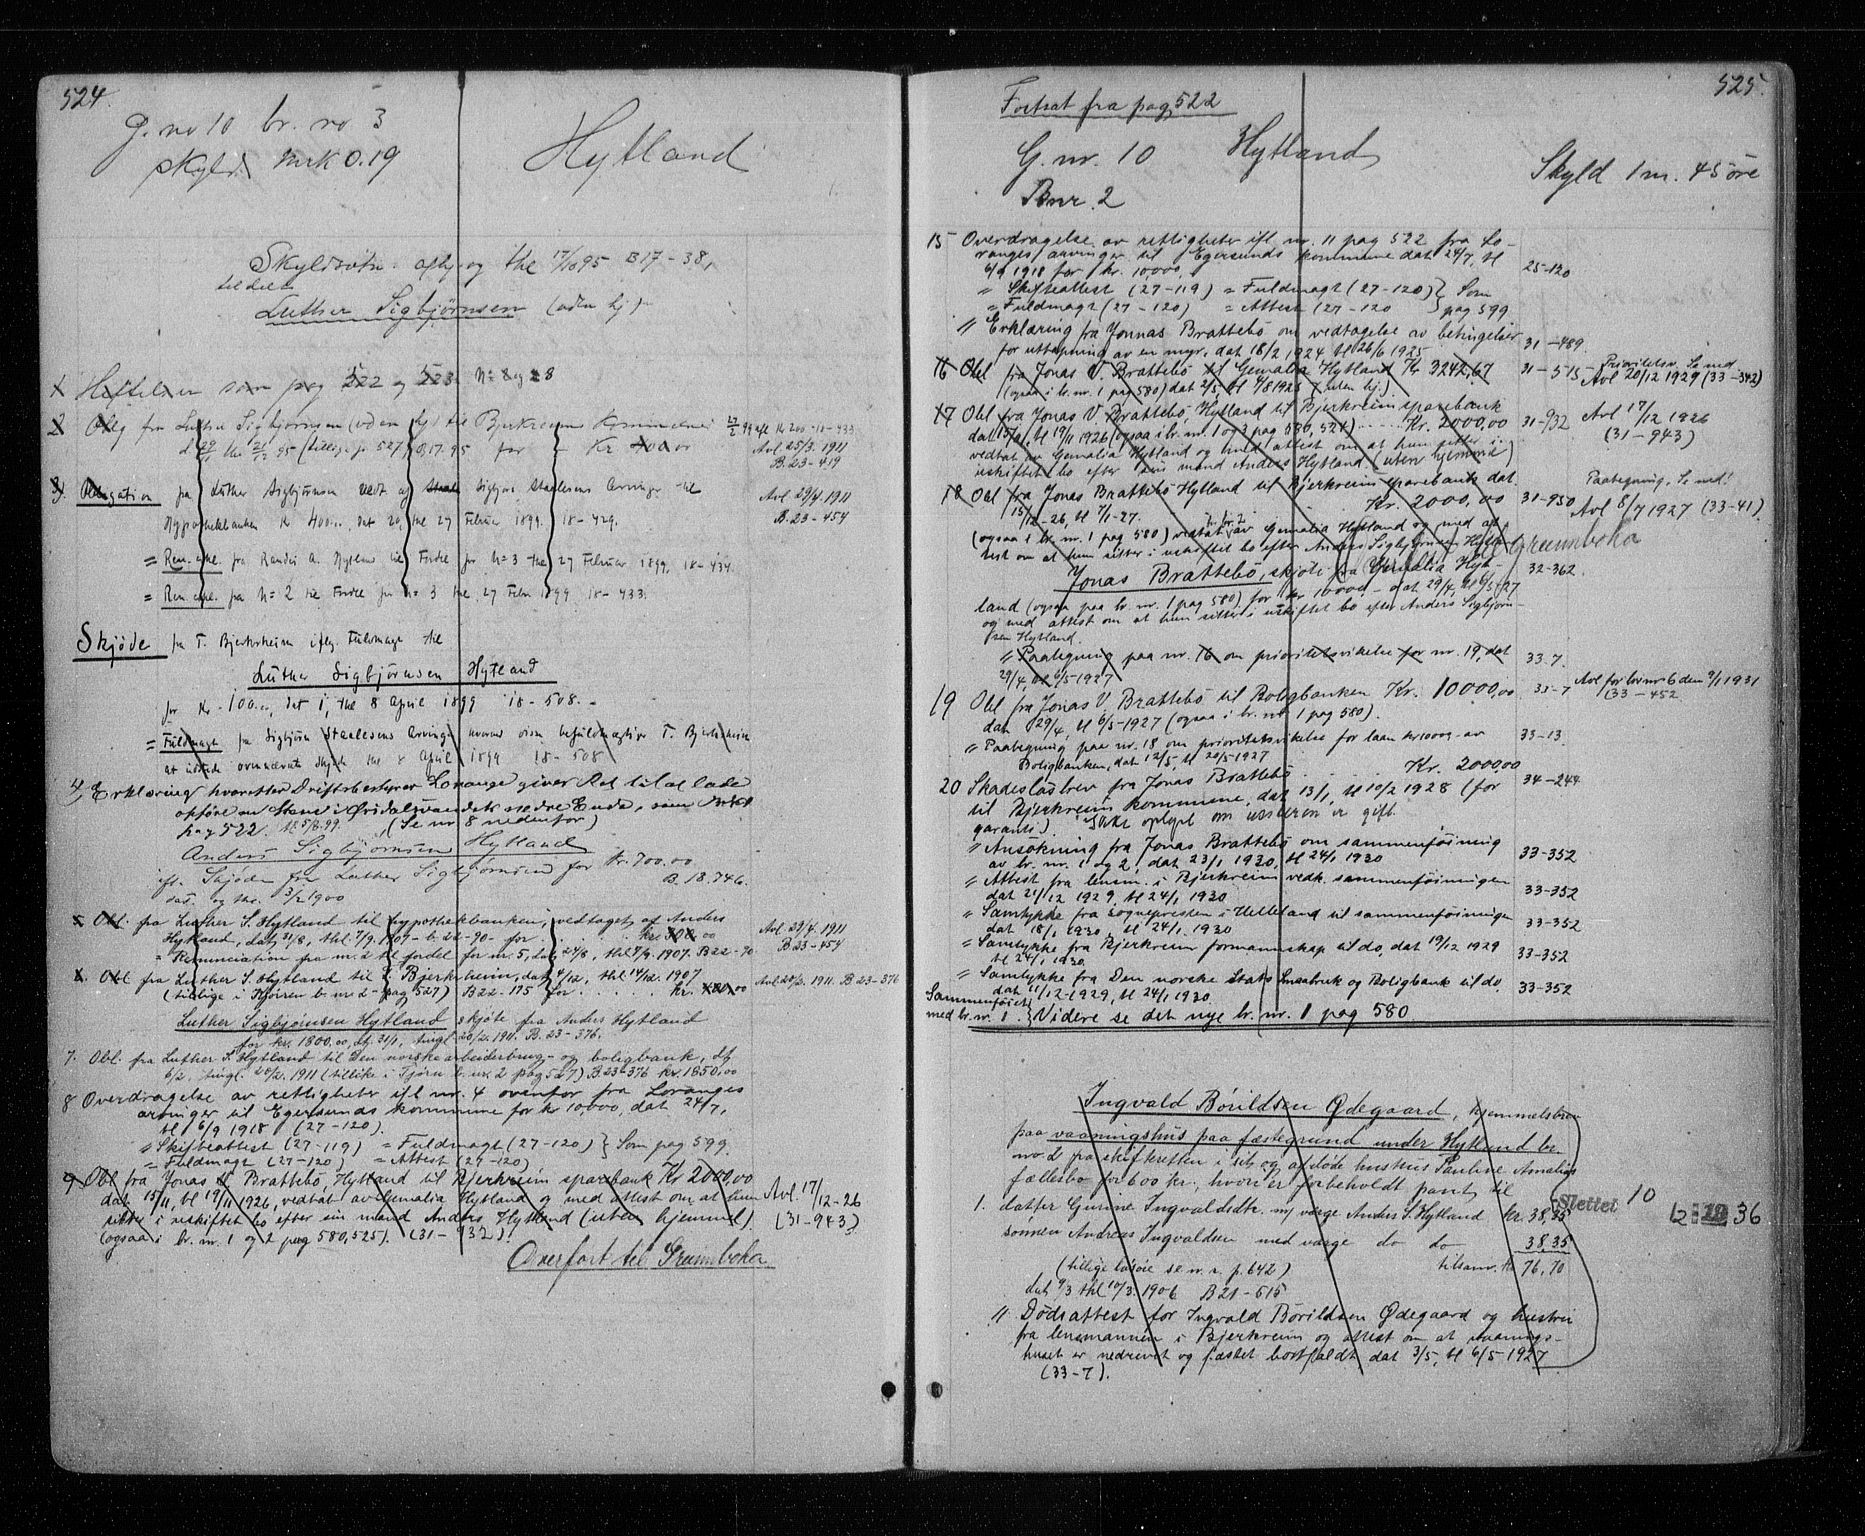 524.
G. no 10 br. no 3
Skyld mrk 0.19
Hytland
Skyldsætn. afh. og thl 17/10 95 B 17 - 38,
tildelt
Luther Sigbjørnsen (uden hj)
1 Heftelsen som pag 522 og 523
2 Oblg fra Luther Sigbjørnsen (uden hj) til Bjerkreim Kommune
(tillige p. 527) B.17.95 for Kr 400.00
Avl 25/3. 1911
B. 23-419
3). Obligation fra Luther Sigbjørnsen vedt af Sigbjørn Staalesens Arvinger til
Hypothekbanken Kr 400.. dat 20, thl 27 Februar 1899. 18-429.
Avl 29/4. 1911
B. 23-454
= Ren. erkl. fra Randei A. Hytland til Fordel for N=3 thl 27 Februar 1899. 18-434.
= Ren. erkl. fra N=2 til Fordel for N=3 thl 27 Febr 1899 18-433.
Skjøde fra T. Bjerkreheim iflg. Fuldmagt til
Luther Sigbjørnsen Hytland
for Kr. 100.., dat 1, thl 8 April 1899 18-508.
= Fuldmagt fra Sigbjørn Staalesens Arvinger T. Bjerkreheim
at udstede ovennævnte skjøde thl 8 April 1899 18-508
4) Erklæring hvorefter Driftsbestyrer Lorange giver Ret til at lade
opføre en Stem i Ørsdalsvandets nedre Ende, som
pag 522. thl 5/8.99. (Se nr 8 nedenfor)
Anders Sigbjørnsen Hytland
ift. Skjøde fra Luther Sigbjørnsen for Kr. 700.00
dat. og thl. 3/2 1900 B. 18.746.
5 Obl. fra Luther S. Hytland til hypothekbanken, vedtaget af Anders
Hytland, dat 31/8, thl 7/9. 1907 - b. 22-70 - for kr. 300.00
Avl 29/4. 1911
B. 23-454
= Renunciation fra nr. 2 til fordel for nr. 5, dat 24/8, thl 7/9. 1907. B 22-70
6. Obl fra Luther S. Hytland til Bjerkreheim, dat 4/12, thl 14/12. 1907
(tillige i Hjorren b. nr 2 - pag 527) B 22. 175 for kr. 400.00
Avl 20/2. 1911. B. 23-376
Luther Sigbjørnsen Hytland skjøte fra Anders Hytland
for kr. 1800.00, dt. 31/1, tingl. 20/2. 1911. B. 23-376.
7. Obl. fra Luther S. Hytland til Den norske arbeiderbrug- og boligbank, dt
6/2. tingl. 20/2. 1911 (tillike i Tjørn b. nr. 2 pag 527) B. 23-376 kr. 1850.00
8 Overdragelse av rettigheter ifl nr. 4 ovenfor fra Loranges
arvinger til Egersunds kommune for kr 10000, dat 24/7,
tl 6/9 1918 (27-120).
" Skifteattest (27-119) = Fuldmagt (27-120) } Som pag 599.
= Fuldmagt (27-120) = Attest (27-120)
9 Obl fra Jonas V. Brattebø, Hytland til Bjerkreim sparebank Kr 2000,00
dat 15/11, tl 19/11 1926, vedtat av Gemalia Hytland og med attest om at hun
sitter i uskiftet bo efter sin mand Anders Hytland (uten hjemmel).
(ogsaa i br. nr. 1 og 2 pag 580, 525). (31-932).
Avl. 17/12-26
(31-943)
Overført til Grunnboka
525.
Fortsat fra pag 522
G. nr. 10 Hytland Skyld 1 m. 45 øre
Bnr. 2
15 Overdragelse av rettigheter ifl. nr. 11 pag 522 fra Lo-
ranges arvinger til Egersunds kommune dat 24/7, tl
6/9 1918 for kr. 10000, 25-120
" Skifteattest (27-119) = Fuldmagt (27-120) } Som
= Fuldmagt (27-120) = Attest (27-120 } pag 599
" Erklæring fra Jonnas Brattebø om vedtagelse av betingelser
for uttapning av en myr, dat 18/2 1924 tl 26/6 1925 31-489.
16 Obl fra Jonas V. Brattebø til Gemalia Hytland Kr 3242,67 31-515
(ogsaa i br. nr. 1 pag 580) dat 2/5 tl 4/8 1925 (uten hj.)
Prioritetsv. Se ned
Avl 20/12 1929 (33-342)
17 Obl fra Jonas V. Brattebø, Hytland til Bjerkreim sparebank
dat 15/11, tl 19/11 1926 (ogsaa i br. nr. 1 og 3 pag 580, 524) Kr. 2000,00 31-932
vedtat av Gemalia Hytland og med attest om at hun sitter i
uskiftet bo efter sin mand Anders Hytland (uten hjemmel)
Avl 17/12 1926
(31-943)
18 Obl fra Jonas Brattebø Hytland til Bjerkreim sparebank dat.
15/12-26, tl 7/1-27. Kr. 2000,00 31-950
(ogsaa i br. nr. 1 pag 580) vedtat av Gemalia Hytland og med at-
test om at hun sitter i uskiftet bo efter Anders Sigbjørnsen Hytland
Paategning. Se ned!
Avl 8/7 1927 (33-41).
Grunnboka
Jonas Brattebø, skjøte fra Gemalia Hyt- 32-362
land (ogsaa paa br. nr. 1 pag 580) for kr 10000 - dat 29/4, tl 6/5-27
og med attest om at hun sitter i uskiftet bo efter Anders Sigbjørn-
sen Hytland.
" Paategning paa nr. 16 om prioritetsvikelse for nr. 19, dat 33-7.
29/4, tl 6/5-1927
19 Obl fra Jonas V. Brattebø til Boligbanken Kr. 10000,00 33-7
dat 29/4, tl 6/5-1927 (ogsaa i br. nr. 1 pag 580).
Avl for br nr 6 den 9/1 1931
(33-452
" Paategning paa nr. 18 om prioritetsvikelse for laan kr 10000 av
Boligbanken, dat 12/5, tl 20/5-1927 33-13.
20 Skadesløsbrev fra Jonas Brattebø Kr. 2000,00 34-244
til Bjerkreim kommune, dat 13/1, tl 10/2 1928 (for
garanti). Ikke oplyst om utstederen er gift.
" Ansøkning fra Jonas Brattebø om sammenføining
av br. nr. 1 og 2, dat 23/1 1930, tl 24/1 1930 33-352
" Attest fra lensm. i Bjerkreim vedk. sammenføiningen
dat 24/12 1929, tl 24/1 1930 33-352
" Samtykke fra sognepresten i Helleland til sammenføiningen
dat 18/1 1930, tl 24/1 1930 33-352
" Samtykke fra Bjerkreim formannskap til do, dat 19/12 1929
tl 24/1 1930. 33-352
" Samtykke fra Den norske stats småbruk og Boligbank til do.
dat 11/12-1929, tl 24/1 1930. 33-352
Sammenføiet
med br. nr. 1. } Videre se det nye br. nr. 1 pag 580
Ingvald Børildsen Ødegaard, hjemmelsbrev
paa vaaningshus paa fæstegrund under Hytland br.
no 2 fra skifteretten i sit og afdøde hustrus Pauline Amalies
fællesbo for 600 kr., hvori er forbeholdt pant til
1. datter Gurine Ingvaldsdtr. m/ værge Anders S. Hytland kr. 38,35
sønnen Andreas Ingvaldsen med værge do do 38,35
(tillige løsøre se n. r. p. 642) tilsam. kr 76,70
dat 9/3 thl 10/3. 1906 B 21-515
Slettet 10
12 36
" Dødsattest for Ingvald Børildsen Ødegaard og hustru
fra lensmannen i Bjerkreim og attest om at vaanings-
huset er nedrevet og fæstet bortfaldt dat 3/5, tl 6/5-1927
(33-7).